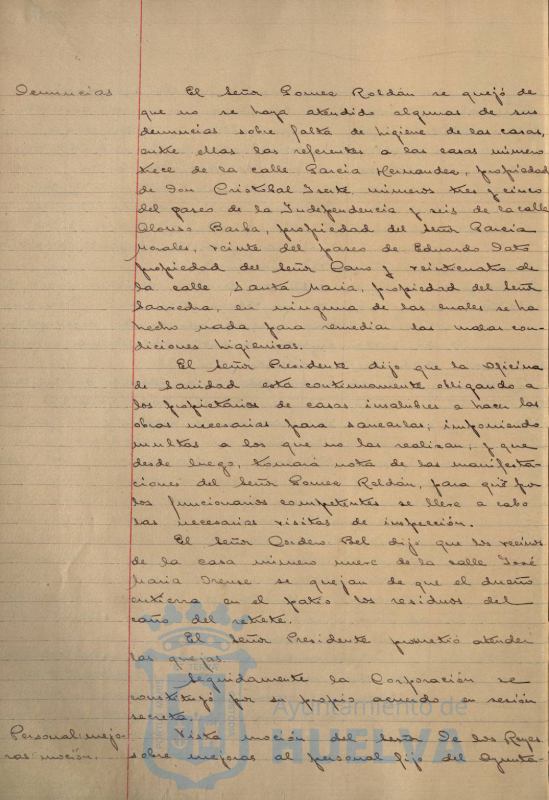 Denuncias
El Señor Gomez Roldán se quejó de
que no se haya atendido algunas de sus
denuncias sobre falta de higiene de las casas,
entre ellas las referentes a las casas número
trece de la calle Garcia Hernandez, propiedad
de Don Cristobal numeros tres y cinco
del paseo de la Independencia y seis de la calle
Alonso Barba, propiedad del Señor Garcia
Morales, veinte del paseo de Eduardo Dato
propiedad del Señor Cano y veinticuatro de
la calle Santa Maria, propiedad del Señor
Saavedra, en ninguna de las cuales se ha
hecho nada para remediar las malas con-
diciones higienicas.
El Señor Presidente dijo que la Oficina
de Sanidad está continuamente obligando a
los propietarios de casas insalubres a hacer las
obras necesarias para sanearlas; imponiendo
multas a los que no las realizan, y que
desde luego, tomará nota de las manifesta-
ciones del Señor Gomez Roldán, para que por
los funcionarios competentes se lleve a cabo
las necesarias visitas de inspección.
El Señor Cordero Bel dijo que los vecinos
de la casa número nueve de la calle José
Maria Orense se quejan de que el dueño
entierra en el patio los residuos del
caño del retrete.
El Señor Presidente prometió atender
las quejas.
Seguidamente la Corporación se
constituyó por su propio acuerdo en sesión
secreta.
Personal: mejo-
ras moción.
Vista moción del Señor De los Reyes
sobre mejoras al personal fijo del Ayunta-
Ayuntamiento de
HUELVA